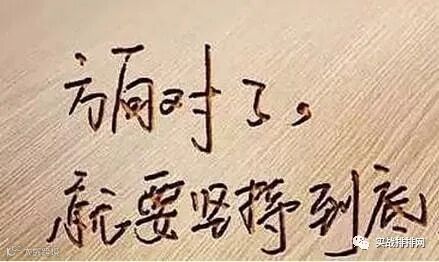 方向对了，
就要坚持到底
实战排排网